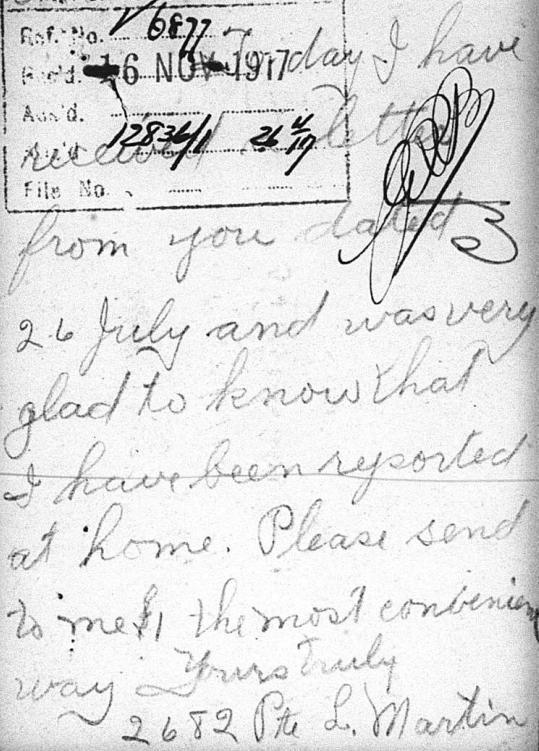 Ref. No. 6877
Rec'd. 16 NOV 1917
Ack'd.
12836/1 26 4/17
File No.
Today I have
received letter
from you dated
26 July and was very
glad to know that
I have been reported
at home. Please send
to me the most convenien
way Yours truly
2682 Pte L. Martin